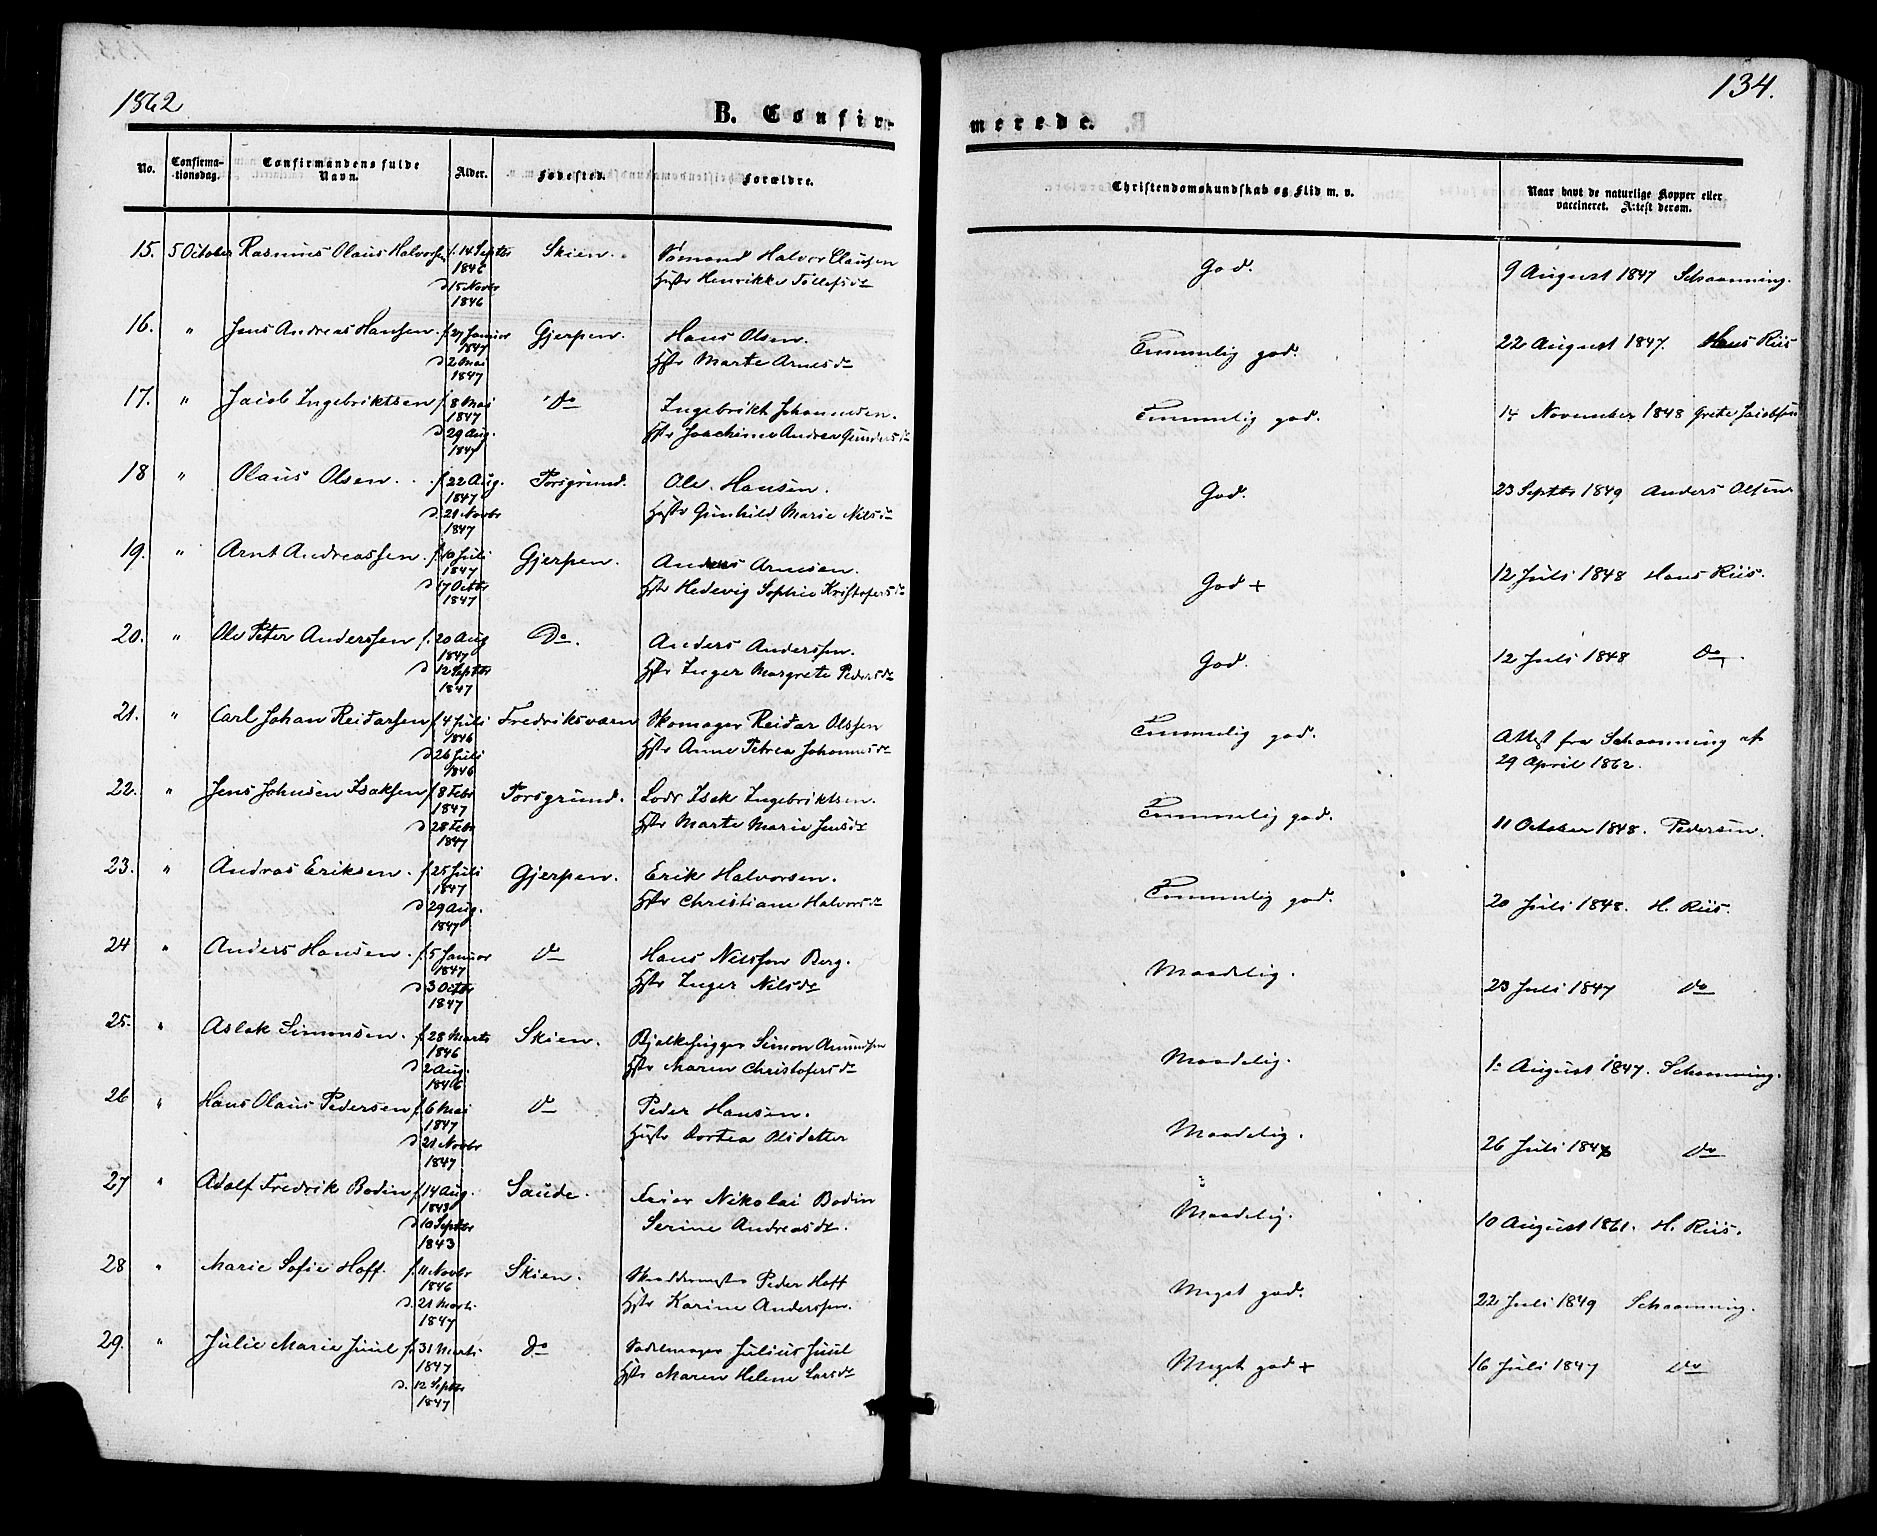 1862
134.
B. Confir-
merede.
No.
Confirma-
tionsdag.
Confirmandens fulde
Navn.
Alder.
Fødested.
Forældre.
Christendomskundskab og Flid m. v.
Naar havt de naturlige Kopper eller
vaccineret. Attest derom.
15. 5 October Rasmus Olaus Halvorsen f. 14 Septbr Skien. Sømand Halvor Clausen God. 9 August 1847 Schaanning.
1846 Hstr Henrikke Tollefsdr
d 15 Novbr
1846
16. " Jens Andreas Hansen. f. 27 Januar Gjerpen. Hans Olsen. Temmelig god. 22 August 1847. Hans Riis
1847 Hstr Marte Arnesdr
d 2 Mai
1847
17. " Jacob Ingebriktsen f 8 Mai Do Ingebrikt Johannesen. Temmelig god. 14 November 1848 Grete Jacobsen
1847 Hstr Joachime Andrea Gundersdr
d 29 Aug.
1847
18 " Olaus Olsen. f 22 Aug. Porsgrund. Ole Hansen. God. 23 Septbr 1849 Anders Olsen.
1847 Hstr Gunhild Marie Nilsdr
d. 21 Novbr
1847
19. " Arnt Andreassen. f 10 Juli Gjerpen. Anders Arnesen. God + 12 Juli 1848 Hans Riis.
1847 Hstr Hedevig Sophie Kristofersdr
d 17 Octbr
1847
20. " Ole Peter Anderssen f. 20 Aug Do. Anders Anderssen. God. 12 Juli 1848 Do.
1847 Hstr Inger Margrete Pedersdr
d 12 Septbr
1847
21. " Carl Johan Reidarsen f 4 Juli Fredriksværn Skomager Reidar Olssen Temmelig god. Attest fra Schaanning af
1846 Hstr Anne Petrea Johannesdr 29 April 1862.
d 26 Juli
1846
22. " Jens Johnsen Isaksen f 8 Febr Porsgrund. Lods Isak Ingebriktsen. Temmelig god. 11 October 1848. Pedersen.
1847 Hstr Marte Marie Jensdr
d 28 Febr
1847
23. " Andras Eriksen. f. 25 Juli Gjerpen. Erik Halvorsen. Temmelig god. 20 Juli 1848. H. Riis.
1847 Hstr Christiane Halvorsdr
d 29 Aug.
1847
24 " Anders Hansen. f. 5 Januar Do Hans Nilssen Berg. Maadelig. 23 Juli 1847 Do
1847 Hstr Inger Nilsdr
d 3 Octbr
1847
25. " Aslak Simonsen. f. 28 Marts Skien. Bjelkehugger Simon Amundsen Maadelig. 1. August 1847. Schaanning.
1846 Hstr Maren Christofersdr
d 2 Aug.
1846
26 " Hans Olaus Pedersen f. 6 Mai Do Peder Hansen. Maadelig. 26 Juli 1847 Do
1847 Hustr Dortea Olsdatter
d 21 Novbr
1847
27 " Adolf Fredrik Bodin f 14 Aug. Saude. Nikolai Bodin Maadelig. 10 August 1861. H. Riis.
1843 Serine Andreasdr.
d 10 Septbr
1843
28 " Marie Sofie Hoff. f. 11 Novbr Skien. Skræddermester Peder Hoff Meget god. 22 Juli 1849 Schaanning.
1846 Hstr Karine Anderssen.
d. 21 Marts
1847
29. " Julie Marie Juul f. 31 Marts Do Sadelmager Julius Juul Meget god + 16 Juli 1847 Do
1847 Hstr Maren Helene Larsdr
d. 12 Septbr
1847